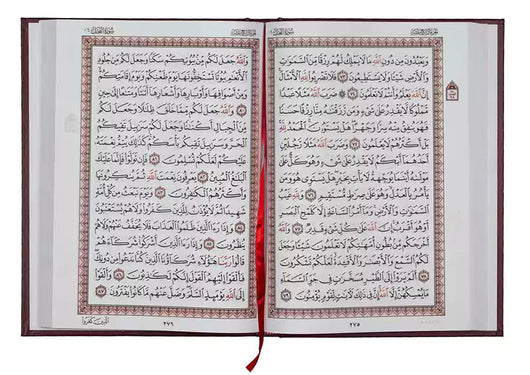 الجزء الرابع عشر
سورة النحل ١٦
وَيَعْبُدُونَ مِن دُونِ ٱللَّهِ مَا لَا يَمْلِكُ لَهُمْ رِزْقًا مِّنَ ٱلسَّمَٰوَٰتِ
وَٱلْأَرْضِ شَيْـًٔا وَلَا يَسْتَطِيعُونَ ٧٣ فَلَا تَضْرِبُوا۟ لِلَّهِ ٱلْأَمْثَالَ
إِنَّ ٱللَّهَ يَعْلَمُ وَأَنتُمْ لَا تَعْلَمُونَ ٧٤ ۞ ضَرَبَ ٱللَّهُ مَثَلًا عَبْدًا
مَّمْلُوكًا لَّا يَقْدِرُ عَلَىٰ شَىْءٍ وَمَن رَّزَقْنَٰهُ مِنَّا رِزْقًا حَسَنًا
فَهُوَ يُنفِقُ مِنْهُ سِرًّا وَجَهْرًا هَلْ يَسْتَوُۥنَ ٱلْحَمْدُ لِلَّهِ
بَلْ أَكْثَرُهُمْ لَا يَعْلَمُونَ ٧٥ وَضَرَبَ ٱللَّهُ مَثَلًا رَّجُلَيْنِ
أَحَدُهُمَآ أَبْكَمُ لَا يَقْدِرُ عَلَىٰ شَىْءٍ وَهُوَ كَلٌّ عَلَىٰ
مَوْلَىٰهُ أَيْنَمَا يُوَجِّههُّ لَا يَأْتِ بِخَيْرٍ هَلْ يَسْتَوِى هُوَ وَمَن
يَأْمُرُ بِٱلْعَدْلِ وَهُوَ عَلَىٰ صِرَٰطٍ مُّسْتَقِيمٍ ٧٦ وَلِلَّهِ غَيْبُ
ٱلسَّمَٰوَٰتِ وَٱلْأَرْضِ وَمَآ أَمْرُ ٱلسَّاعَةِ إِلَّا كَلَمْحِ ٱلْبَصَرِ
أَوْ هُوَ أَقْرَبُ إِنَّ ٱللَّهَ عَلَىٰ كُلِّ شَىْءٍ قَدِيرٌ ٧٧ وَٱللَّهُ
أَخْرَجَكُم مِّنۢ بُطُونِ أُمَّهَٰتِكُمْ لَا تَعْلَمُونَ شَيْـًٔا وَجَعَلَ
لَكُمُ ٱلسَّمْعَ وَٱلْأَبْصَٰرَ وَٱلْأَفْـِٔدَةَ لَعَلَّكُمْ تَشْكُرُونَ ٧٨
أَلَمْ يَرَوْا۟ إِلَى ٱلطَّيْرِ مُسَخَّرَٰتٍ فِى جَوِّ ٱلسَّمَآءِ
مَا يُمْسِكُهُنَّ إِلَّا ٱللَّهُ إِنَّ فِى ذَٰلِكَ لَءَايَٰتٍ لِّقَوْمٍ يُؤْمِنُونَ ٧٩
٢٧٥
الجزء الرابع عشر
سورة النحل ١٦
وَٱللَّهُ جَعَلَ لَكُم مِّنۢ بُيُوتِكُمْ سَكَنًا وَجَعَلَ لَكُم مِّن جُلُودِ
ٱلْأَنْعَٰمِ بُيُوتًا تَسْتَخِفُّونَهَا يَوْمَ ظَعْنِكُمْ وَيَوْمَ إِقَامَتِكُمْ
وَمِنْ أَصْوَافِهَا وَأَوْبَارِهَا وَأَشْعَارِهَآ أَثَٰثًا وَمَتَٰعًا إِلَىٰ حِينٍ
٨٠ وَٱللَّهُ جَعَلَ لَكُم مِّمَّا خَلَقَ ظِلَٰلًا وَجَعَلَ لَكُم
مِّنَ ٱلْجِبَالِ أَكْنَٰنًا وَجَعَلَ لَكُمْ سَرَٰبِيلَ تَقِيكُمُ
ٱلْحَرَّ وَسَرَٰبِيلَ تَقِيكُم بَأْسَكُمْ كَذَٰلِكَ يُتِمُّ نِعْمَتَهُۥ
عَلَيْكُمْ لَعَلَّكُمْ تُسْلِمُونَ ٨١ فَإِن تَوَلَّوْا۟ فَإِنَّمَا عَلَيْكَ
ٱلْبَلَٰغُ ٱلْمُبِينُ ٨٢ يَعْرِفُونَ نِعْمَتَ ٱللَّهِ ثُمَّ يُنكِرُونَهَا
وَأَكْثَرُهُمُ ٱلْكَٰفِرُونَ ٨٣ وَيَوْمَ نَبْعَثُ مِن كُلِّ أُمَّةٍ
شَهِيدًا ثُمَّ لَا يُؤْذَنُ لِلَّذِينَ كَفَرُوا۟ وَلَا هُمْ يُسْتَعْتَبُونَ
٨٤ وَإِذَا رَءَا ٱلَّذِينَ ظَلَمُوا۟ ٱلْعَذَابَ فَلَا يُخَفَّفُ عَنْهُمْ وَلَا هُمْ
يُنظَرُونَ ٨٥ وَإِذَا رَءَا ٱلَّذِينَ أَشْرَكُوا۟ شُرَكَآءَهُمْ
قَالُوا۟ رَبَّنَا هَٰٓؤُلَآءِ شُرَكَآؤُنَا ٱلَّذِينَ كُنَّا نَدْعُوا۟ مِن دُونِكَ
فَأَلْقَوْا۟ إِلَيْهِمُ ٱلْقَوْلَ إِنَّكُمْ لَكَٰذِبُونَ ٨٦ وَأَلْقَوْا۟
إِلَى ٱللَّهِ يَوْمَئِذٍ ٱلسَّلَمَ وَضَلَّ عَنْهُم مَّا كَانُوا۟ يَفْتَرُونَ ٨٧
٢٧٦
الذين كفروا